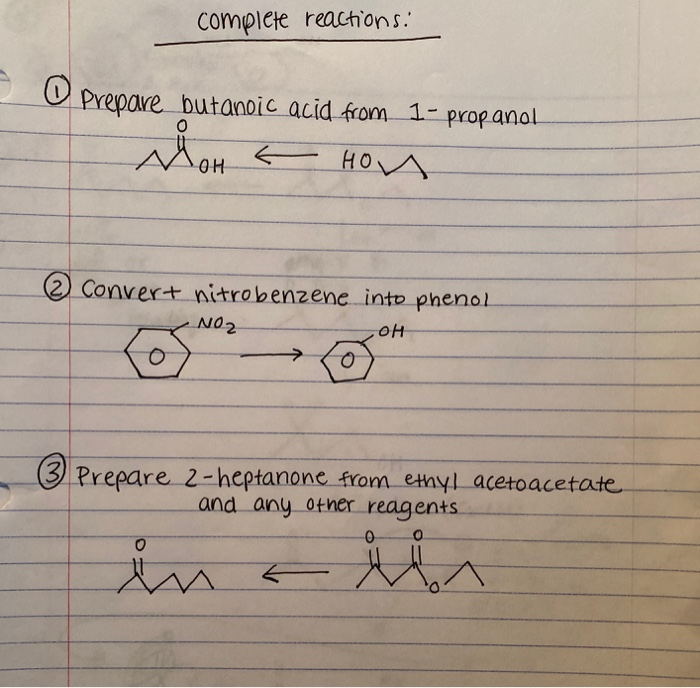 complete reactions:
① prepare butanoic acid from 1-propanol
O
OH ← HO
② Convert nitrobenzene into phenol
NO2 OH
O → O
③ Prepare 2-heptanone from ethyl acetoacetate
and any other reagents
O O O
← O